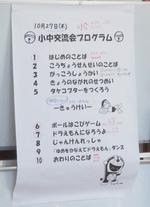 10月27日(木)
小中交流会プログラム
1 はじめのことば
2 こうちょうせんせいのことば
3 がっこうしょうかい
4 きょうのながれのせつめい
5 タケコプターをつくろう
ーきゅうけいー
6 ボールはこびゲーム
7 ドラえもんになろうよ
8 じゃんけんれっしゃ
9 「ゆめをかなえてドラえもん」ダンス
10 おわりのことば